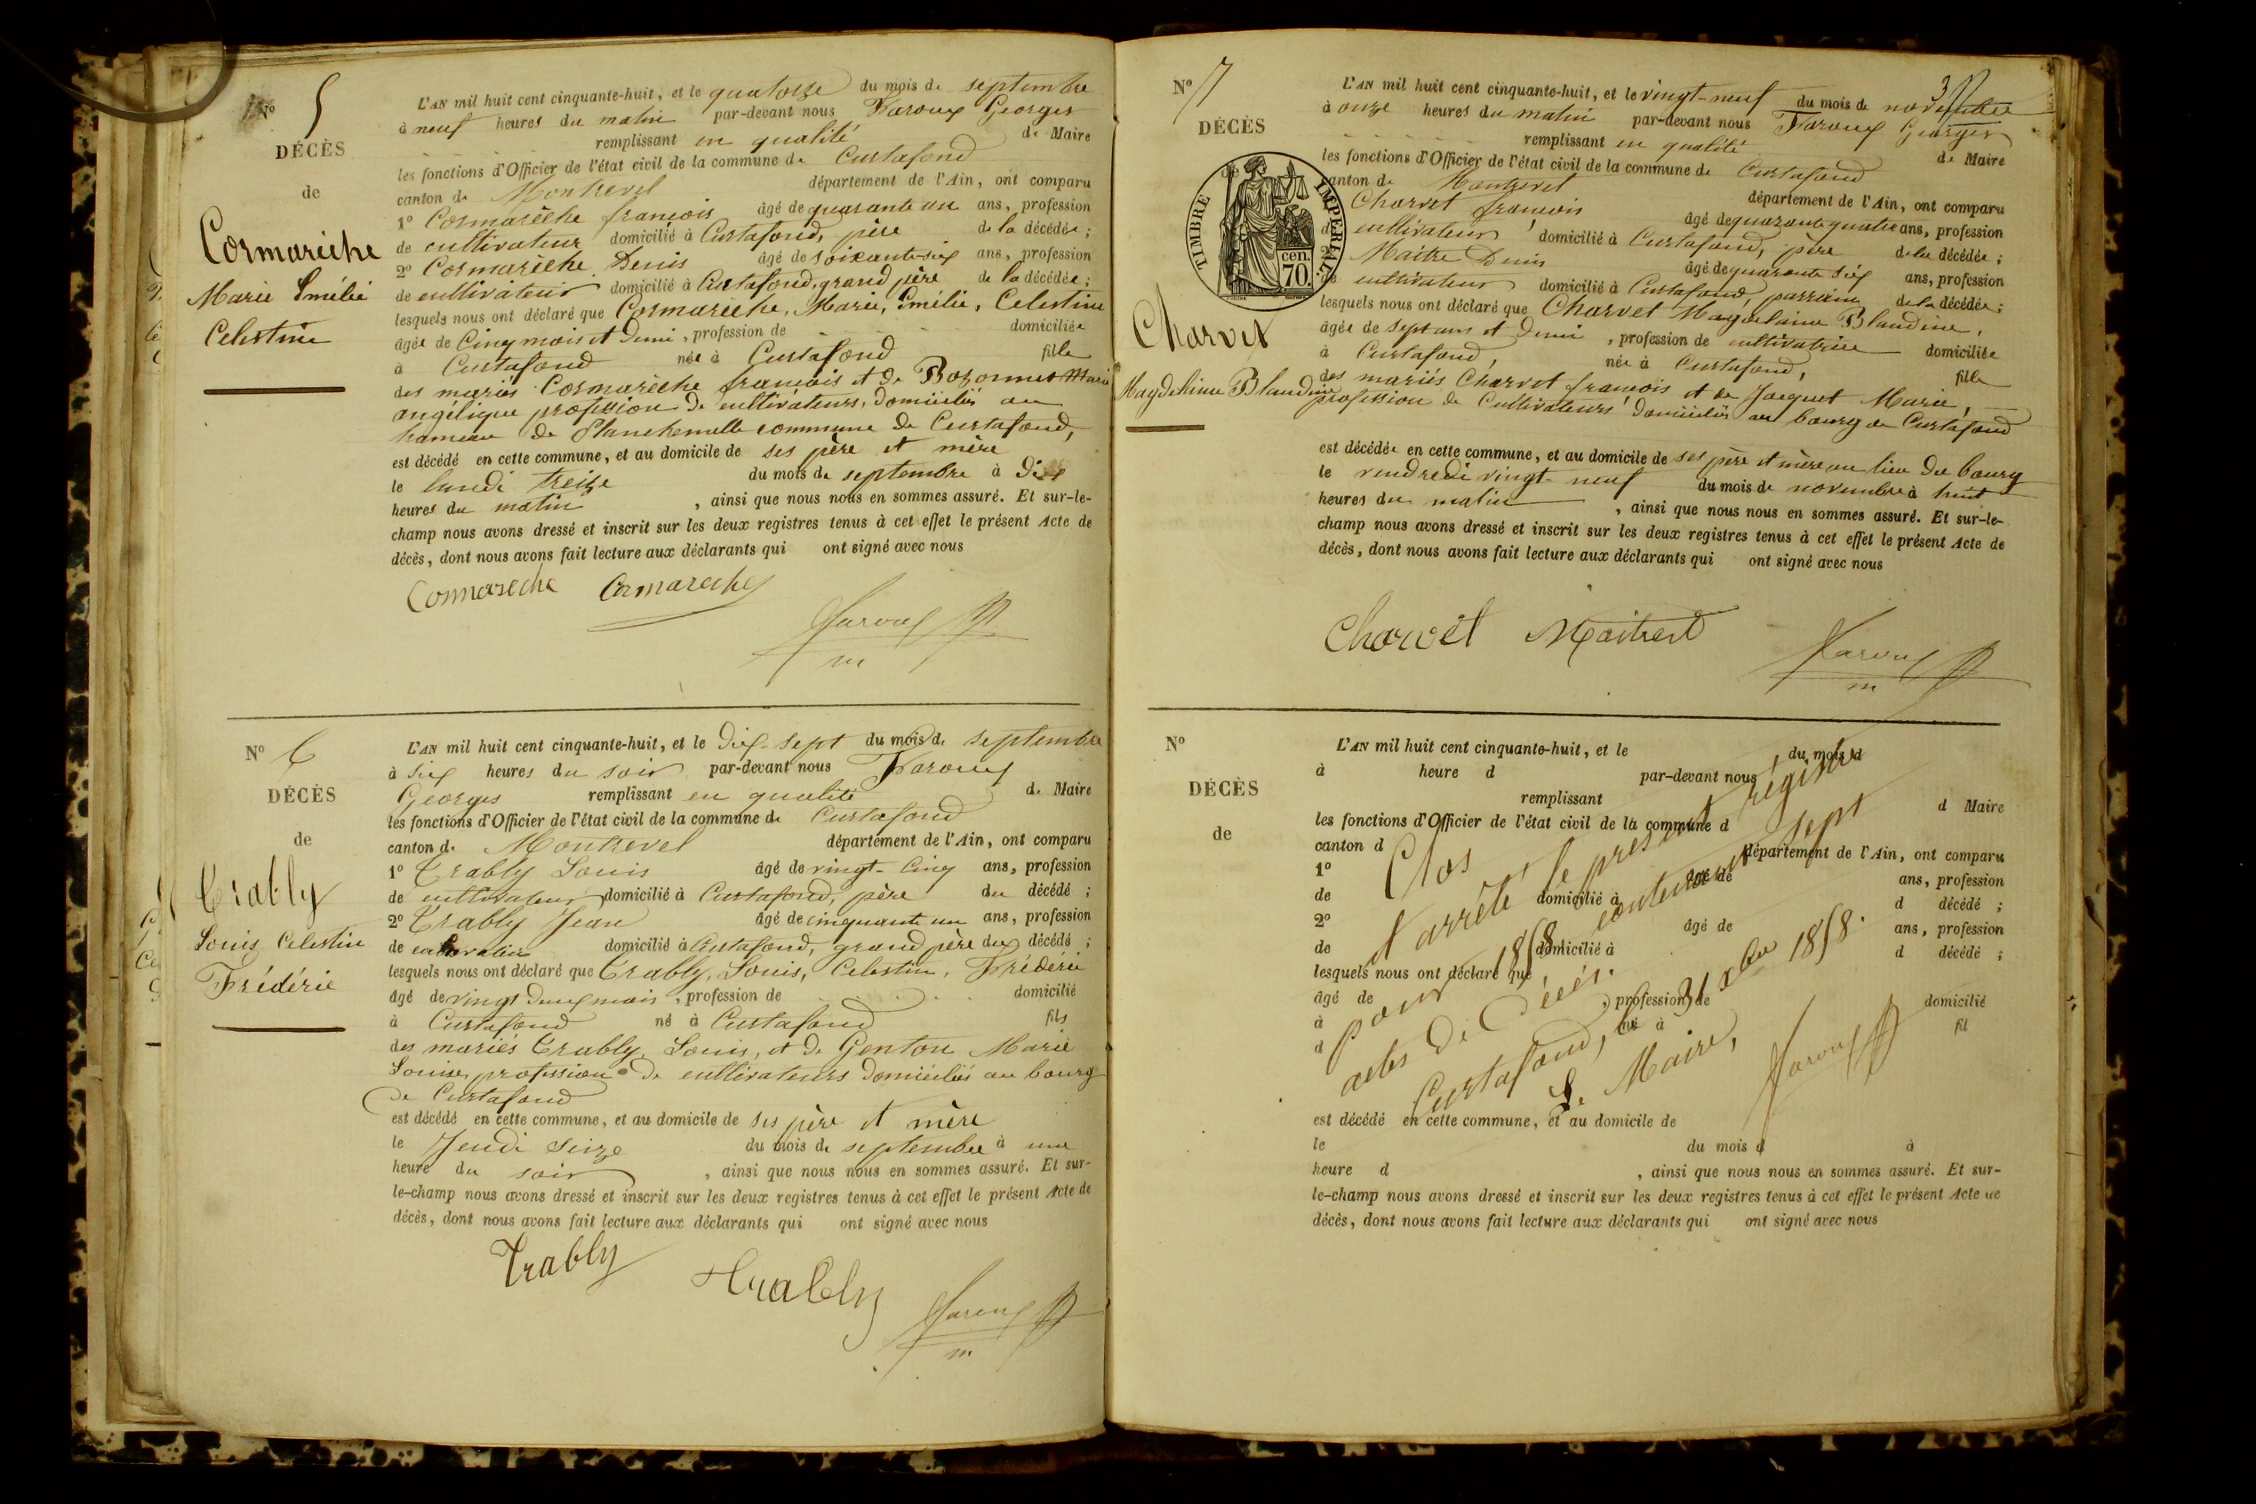 No 5
DÉCÈS
de
Cormarèche
Marie Émélie
Celestine
L'AN mil huit cent cinquante-huit, et le quatorze du mois de septembre
à neuf heures du matin par-devant nous Faroux Georges
remplissant en qualité de Maire
les fonctions d'Officier de l'état civil de la commune de Curtafond
canton de Montrevel département de l'Ain, ont comparu
1o Cormarèche françois âgé de quarante un ans, profession
de cultivateur domicilié à Curtafond, père de la décédée;
2o Cormarèche Denis âgé de soixante-six ans, profession
de cultivateur domicilié à Curtafond, grand père de la décédée;
lesquels nous ont déclaré que Cormarèche, Marie, Émélie, Celestine
âgée de Cinq mois et demi, profession de domiciliée
à Curtafond née à Curtafond fille
des mariés Cormarèche françois et de Bozonnet Marie
angélique profession de cultivateurs, domiciliés au
hameau de Planchemelle commune de Curtafond,
est décédé en cette commune, et au domicile de ses père et mère
le lundi treize du mois de septembre à dix
heures du matin, ainsi que nous nous en sommes assuré. Et sur-le-
champ nous avons dressé et inscrit sur les deux registres tenus à cet effet le présent Acte de
décès, dont nous avons fait lecture aux déclarants qui ont signé avec nous
Cormareche Cormareche
Faroux
m
No 6
DÉCÈS
de
Trably
Louis Celestin
Frédéric
L'AN mil huit cent cinquante-huit, et le dix-sept du mois de septembre
à six heures du soir par-devant nous Faroux
Georges remplissant en qualité de Maire
les fonctions d'Officier de l'état civil de la commune de Curtafond
canton de Montrevel département de l'Ain, ont comparu
1o Trably Louis âgé de vingt-cinq ans, profession
de cultivateur domicilié à Curtafond, père du décédé;
2o Trably Jean âgé de cinquant un ans, profession
de cultivateur domicilié à Curtafond, grand père du décédé;
lesquels nous ont déclaré que Trably, Louis, Celestin, Frédéric
âgé de vingt deux mois, profession de domicilié
à Curtafond né à Curtafond fils
des mariés Trably, Louis, et de Genton Marie
Louise, profession de cultivateurs domiciliés au bourg
de Curtafond
est décédé en cette commune, et au domicile de ses père et mère
le Jeudi seize du mois de septembre à une
heure du soir, ainsi que nous nous en sommes assuré. Et sur-
le-champ nous avons dressé et inscrit sur les deux registres tenus à cet effet le présent Acte de
décès, dont nous avons fait lecture aux déclarants qui ont signé avec nous
Trably Trably
Faroux
m
No 7
DÉCÈS
de
TIMBRE IMPÉRIAL
cen.
70.
Charvet
Magdelaine Blandine
L'AN mil huit cent cinquante-huit, et le vingt-neuf du mois de novembre
à onze heures du matin par-devant nous Faroux Georges
remplissant en qualité de Maire
les fonctions d'Officier de l'état civil de la commune de Curtafond
canton de Montrevel département de l'Ain, ont comparu
Charvet françois âgé de quarante quatre ans, profession
de cultivateur domicilié à Curtafond, père de la décédée;
2o Maitre Denis âgé de quarante six ans, profession
de cultivateur domicilié à Curtafond, parrain de la décédée;
lesquels nous ont déclaré que Charvet Magdelaine Blandine,
âgée de sept ans et demi, profession de cultivatrice domiciliée
à Curtafond, née à Curtafond, fille
des mariés Charvet françois et de Jacquet Marie,
profession de Cultivateurs domiciliés au bourg de Curtafond
est décédée en cette commune, et au domicile de ses père et mère au lieu du bourg
le vendredi vingt-neuf du mois de novembre à huit
heures du matin, ainsi que nous nous en sommes assuré. Et sur-le-
champ nous avons dressé et inscrit sur les deux registres tenus à cet effet le présent Acte de
décès, dont nous avons fait lecture aux déclarants qui ont signé avec nous
Charvet Maitret
Faroux
m
No
DÉCÈS
de
L'AN mil huit cent cinquante-huit, et le du mois d
à heure d par-devant nous
remplissant d Maire
les fonctions d'Officier de l'état civil de la commune d
canton d département de l'Ain, ont comparu
1o âgé de ans, profession
de domicilié à d décédé ;
2o âgé de ans, profession
de domicilié à d décédé ;
lesquels nous ont déclaré que
âgé de , profession de domicilié
à né à fil
d
Clos
et arrêté le présent régistre
pour 1858, contenant sept
actes de Décès.
Curtafond, le 31 xbre 1858.
Le Maire,
Faroux
est décédé en cette commune, et au domicile de
le du mois d à
heure d , ainsi que nous nous en sommes assuré. Et sur-
le-champ nous avons dressé et inscrit sur les deux registres tenus à cet effet le présent Acte de
décès, dont nous avons fait lecture aux déclarants qui ont signé avec nous